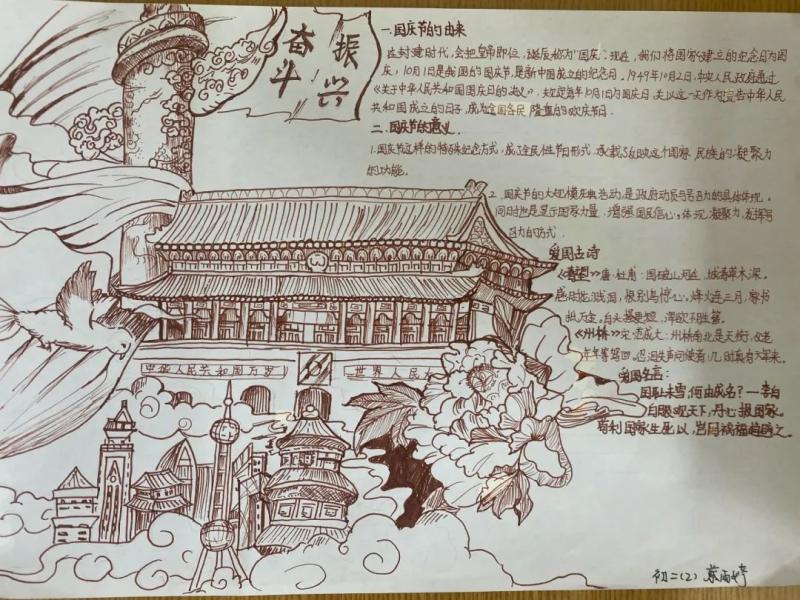 振兴
奋斗
一.国庆节的由来
在封建时代,会把皇帝即位,诞辰称为"国庆".现在,我们将国家建立的纪念日为国
庆,10月1日是我国的国庆节,是新中国成立的纪念日.1949年10月2日,中央人民政府通过
《关于中华人民共和国国庆日的决议》,规定每年10月1日为国庆日,并以这一天作为宣告中华人民
共和国成立的日子,成为全国各民 隆重的欢庆节日.
二.国庆节的意义.
1.国庆节这样的特殊纪念方式,成了全民性节日形式,承载了反映这个国家、民族的凝聚力
的功能。
2.国庆节的大规模庆典活动,是政府动员与号召力的具体体现。
同时也是显示国家力量,增强国民信心,体现凝聚力,发挥号
召力的方式.
爱国古诗
《春望》唐·杜甫:国破山河在,城春草木深。
感时花溅泪,恨别鸟惊心。烽火连三月,家书
抵万金。白头搔更短,浑欲不胜簪。
《州桥》宋·范成大:州桥南北是天街,父老
年年等驾回。忍泪失声问使者,几时真有六军来。
爱国名言:
国耻未雪,何由成名?—李白
白眼观天下,丹心报国家。
苟利国家生死以,岂因祸福趋避之
中华人民共和国万岁
世界人民大
初二(2)